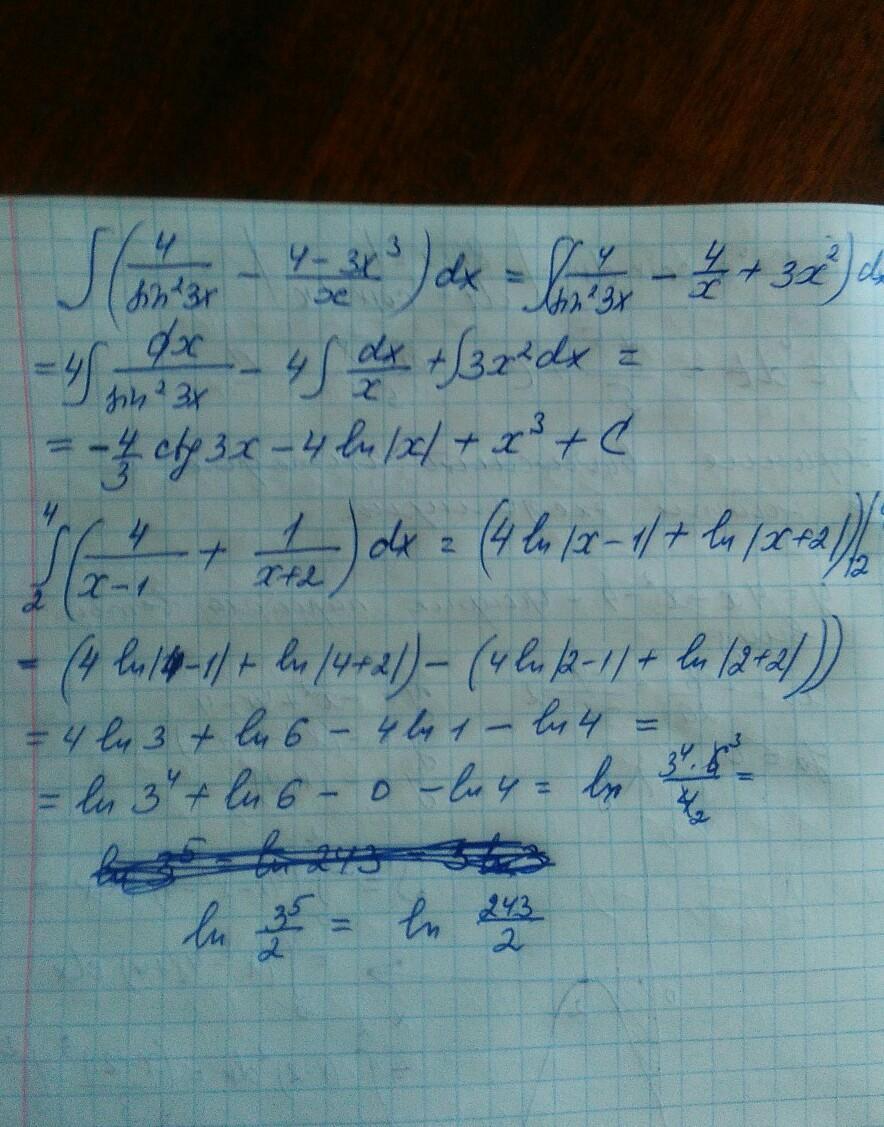 ∫(4/sin²3x − (4−3x³)/x)dx = ∫(4/sin²3x − 4/x + 3x²)dx
= 4∫dx/sin²3x − 4∫dx/x + ∫3x²dx =
= −4/3 ctg3x − 4 ln|x| + x³ + C
∫₂⁴(4/(x−1) + 1/(x+2))dx = (4 ln|x−1| + ln|x+2|)|₂⁴
= (4 ln|4−1| + ln|4+2|) − (4 ln|2−1| + ln|2+2|))
= 4 ln3 + ln6 − 4 ln1 − ln4 =
= ln3⁴ + ln6 − 0 − ln4 = ln (3⁴·6̸³)/4̸₂ =
ln 3⁵/2 = ln 243/2